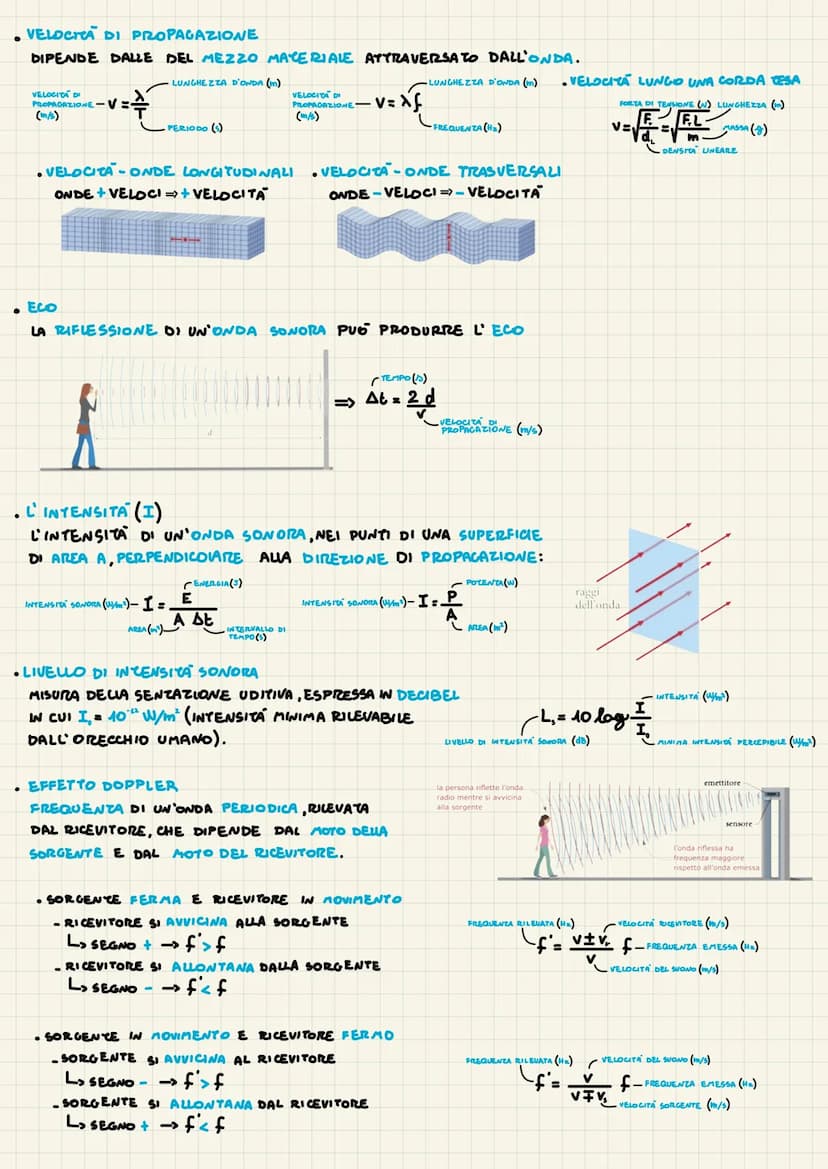 • VELOCITÀ DI PROPAGAZIONE
DIPENDE DALLE DEL MEZZO MATERIALE ATTRAVERSATO DALL'ONDA.
VELOCITÀ DI PROPAGAZIONE (m/s) — V = λ/T
LUNGHEZZA D'ONDA (m)
PERIODO (s)
VELOCITÀ DI PROPAGAZIONE (m/s) — V = λf
LUNGHEZZA D'ONDA (m)
FREQUENZA (Hz)
• VELOCITÀ LUNGO UNA CORDA TESA
FORZA DI TENSIONE (N) LUNGHEZZA (m)
V = √F/dL = √F·L/m
MASSA (g)
DENSITÀ LINEARE
• VELOCITÀ - ONDE LONGITUDINALI
ONDE + VELOCI ⇒ + VELOCITÀ
• VELOCITÀ - ONDE TRASVERSALI
ONDE - VELOCI ⇒ - VELOCITÀ
• ECO
LA RIFLESSIONE DI UN'ONDA SONORA PUÒ PRODURRE L' ECO
d
TEMPO (s)
⇒ Δt = 2d/v
VELOCITÀ DI PROPAGAZIONE (m/s)
• L' INTENSITÀ (I)
L'INTENSITÀ DI UN'ONDA SONORA, NEI PUNTI DI UNA SUPERFICIE
DI AREA A, PERPENDICOLARE ALLA DIREZIONE DI PROPAGAZIONE:
ENERGIA (J)
INTENSITÀ SONORA (W/m²) — I = E/A Δt
AREA (m²)
INTERVALLO DI TEMPO (s)
POTENZA (W)
INTENSITÀ SONORA (W/m²) — I = P/A
AREA (m²)
raggi
dell'onda
• LIVELLO DI INTENSITÀ SONORA
MISURA DELLA SENTAZIONE UDITIVA, ESPRESSA IN DECIBEL
IN CUI I₀ = 10⁻¹² W/m² (INTENSITÀ MINIMA RILEVABILE
DALL'ORECCHIO UMANO).
INTENSITÀ (W/m²)
Ls = 10 log I/I₀
LIVELLO DI INTENSITÀ SONORA (db)
MINIMA INTENSITÀ PERCEPIBILE (W/m²)
• EFFETTO DOPPLER
FREQUENZA DI UN'ONDA PERIODICA, RILEVATA
DAL RICEVITORE, CHE DIPENDE DAL MOTO DELLA
SORGENTE E DAL MOTO DEL RICEVITORE.
la persona riflette l'onda
radio mentre si avvicina
alla sorgente
emettitore
sensore
l'onda riflessa ha
frequenza maggiore
rispetto all'onda emessa
• SORGENTE FERMA E RICEVITORE IN MOVIMENTO
- RICEVITORE SI AVVICINA ALLA SORGENTE
↳ SEGNO + → f' > f
- RICEVITORE SI ALLONTANA DALLA SORGENTE
↳ SEGNO - → f' < f
FREQUENZA RILEVATA (Hz)
VELOCITÀ RICEVITORE (m/s)
f' = v ± vr/v f — FREQUENZA EMESSA (Hz)
VELOCITÀ DEL SUONO (m/s)
• SORGENTE IN MOVIMENTO E RICEVITORE FERMO
- SORGENTE SI AVVICINA AL RICEVITORE
↳ SEGNO - → f' > f
- SORGENTE SI ALLONTANA DAL RICEVITORE
↳ SEGNO + → f' < f
FREQUENZA RILEVATA (Hz)
VELOCITÀ DEL SUONO (m/s)
f' = v/v ∓ vs f — FREQUENZA EMESSA (Hz)
VELOCITÀ SORGENTE (m/s)